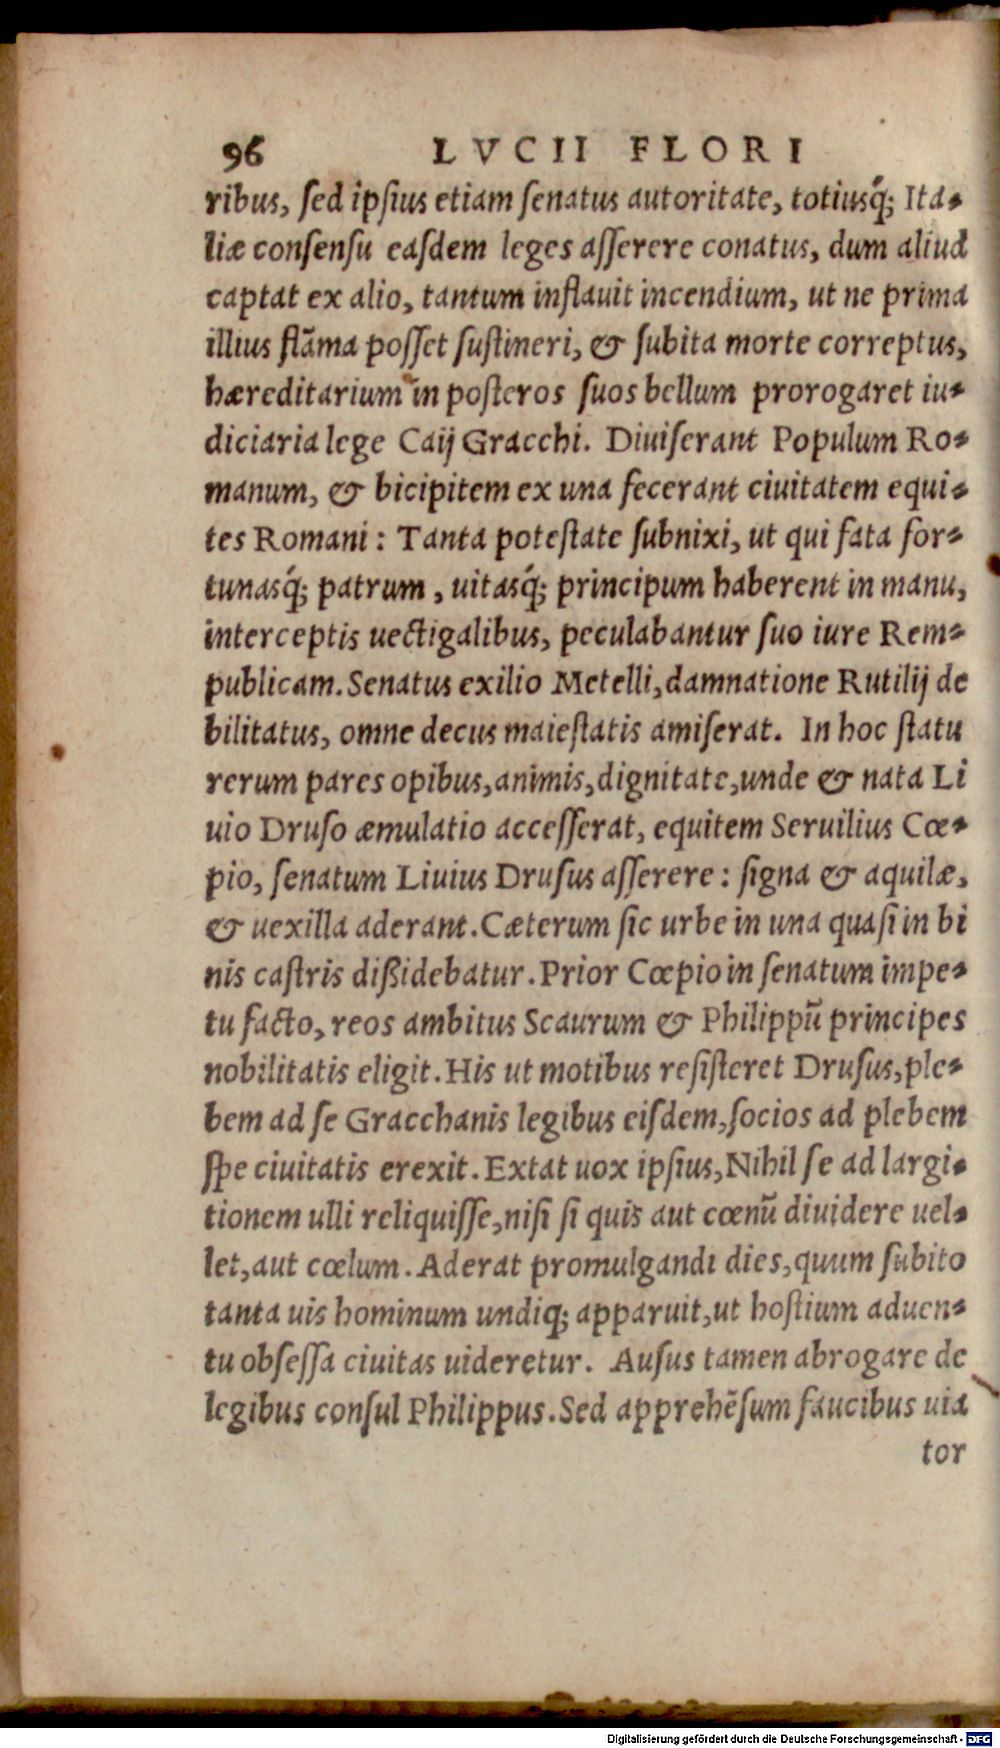 96 LVCII FLORI
ribus, sed ipsius etiam senatus autoritate, totiusq́; Ita-
liæ consensu easdem leges asserere conatus, dum aliud
captat ex alio, tantum inflauit incendium, ut ne prima
illius flāma posset sustineri, & subita morte correptus,
hæreditarium in posteros suos bellum prorogaret iu-
diciaria lege Caij Gracchi. Diuiserant Populum Ro-
manum, & bicipitem ex una fecerant ciuitatem equi-
tes Romani : Tanta potestate subnixi, ut qui fata for-
tunasq́; patrum, uitasq́; principum haberent in manu,
interceptis uectigalibus, peculabantur suo iure Rem-
publicam. Senatus exilio Metelli, damnatione Rutilij de
bilitatus, omne decus maiestatis amiserat. In hoc statu
rerum pares opibus, animis, dignitate, unde & nata Li
uio Druso æmulatio accesserat, equitem Seruilius Cœ-
pio, senatum Liuius Drusus asserere : signa & aquilæ,
& uexilla aderant. Cæterum sic urbe in una quasi in bi
nis castris dißidebatur. Prior Cœpio in senatum impe-
tu facto, reos ambitus Scaurum & Philippū principes
nobilitatis eligit. His ut motibus resisteret Drusus, ple-
bem ad se Gracchanis legibus eisdem, socios ad plebem
spe ciuitatis erexit. Extat uox ipsius, Nihil se ad largi-
tionem ulli reliquisse, nisi si quis aut cœnū diuidere uel-
let, aut cœlum. Aderat promulgandi dies, quum subito
tanta uis hominum undiq; apparuit, ut hostium aduen-
tu obsessa ciuitas uideretur. Ausus tamen abrogare de
legibus consul Philippus. Sed apprehēsum faucibus uia
tor
Digitalisierung gefördert durch die Deutsche Forschungsgemeinschaft - DFG